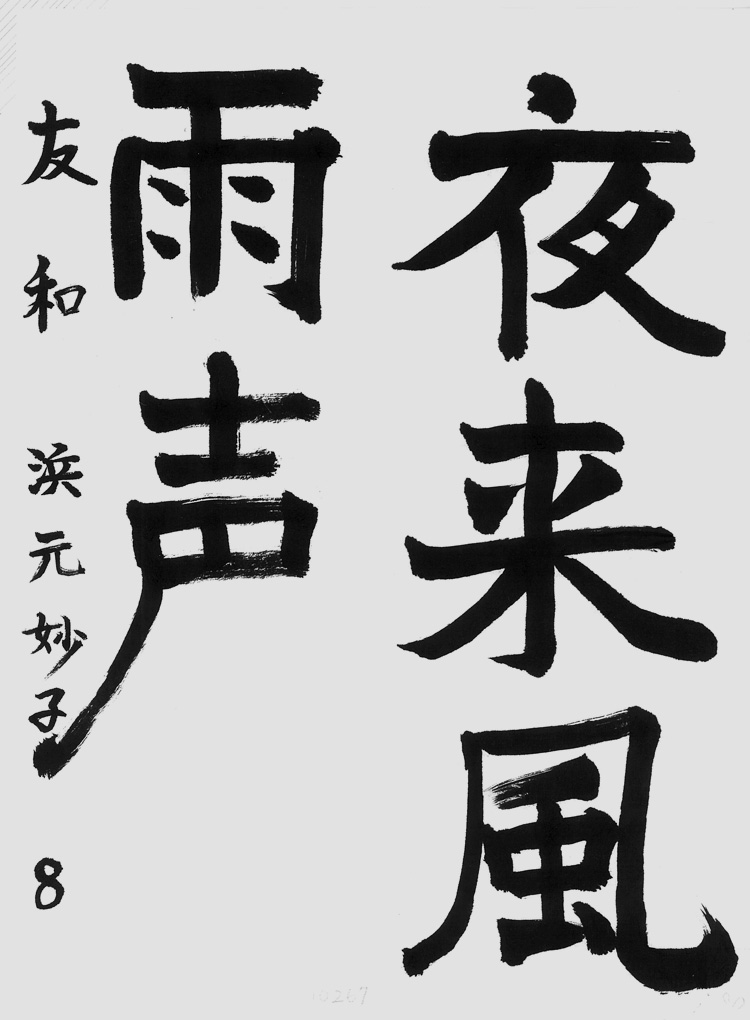 夜来風
雨声
友和 浜元妙子 8
10267